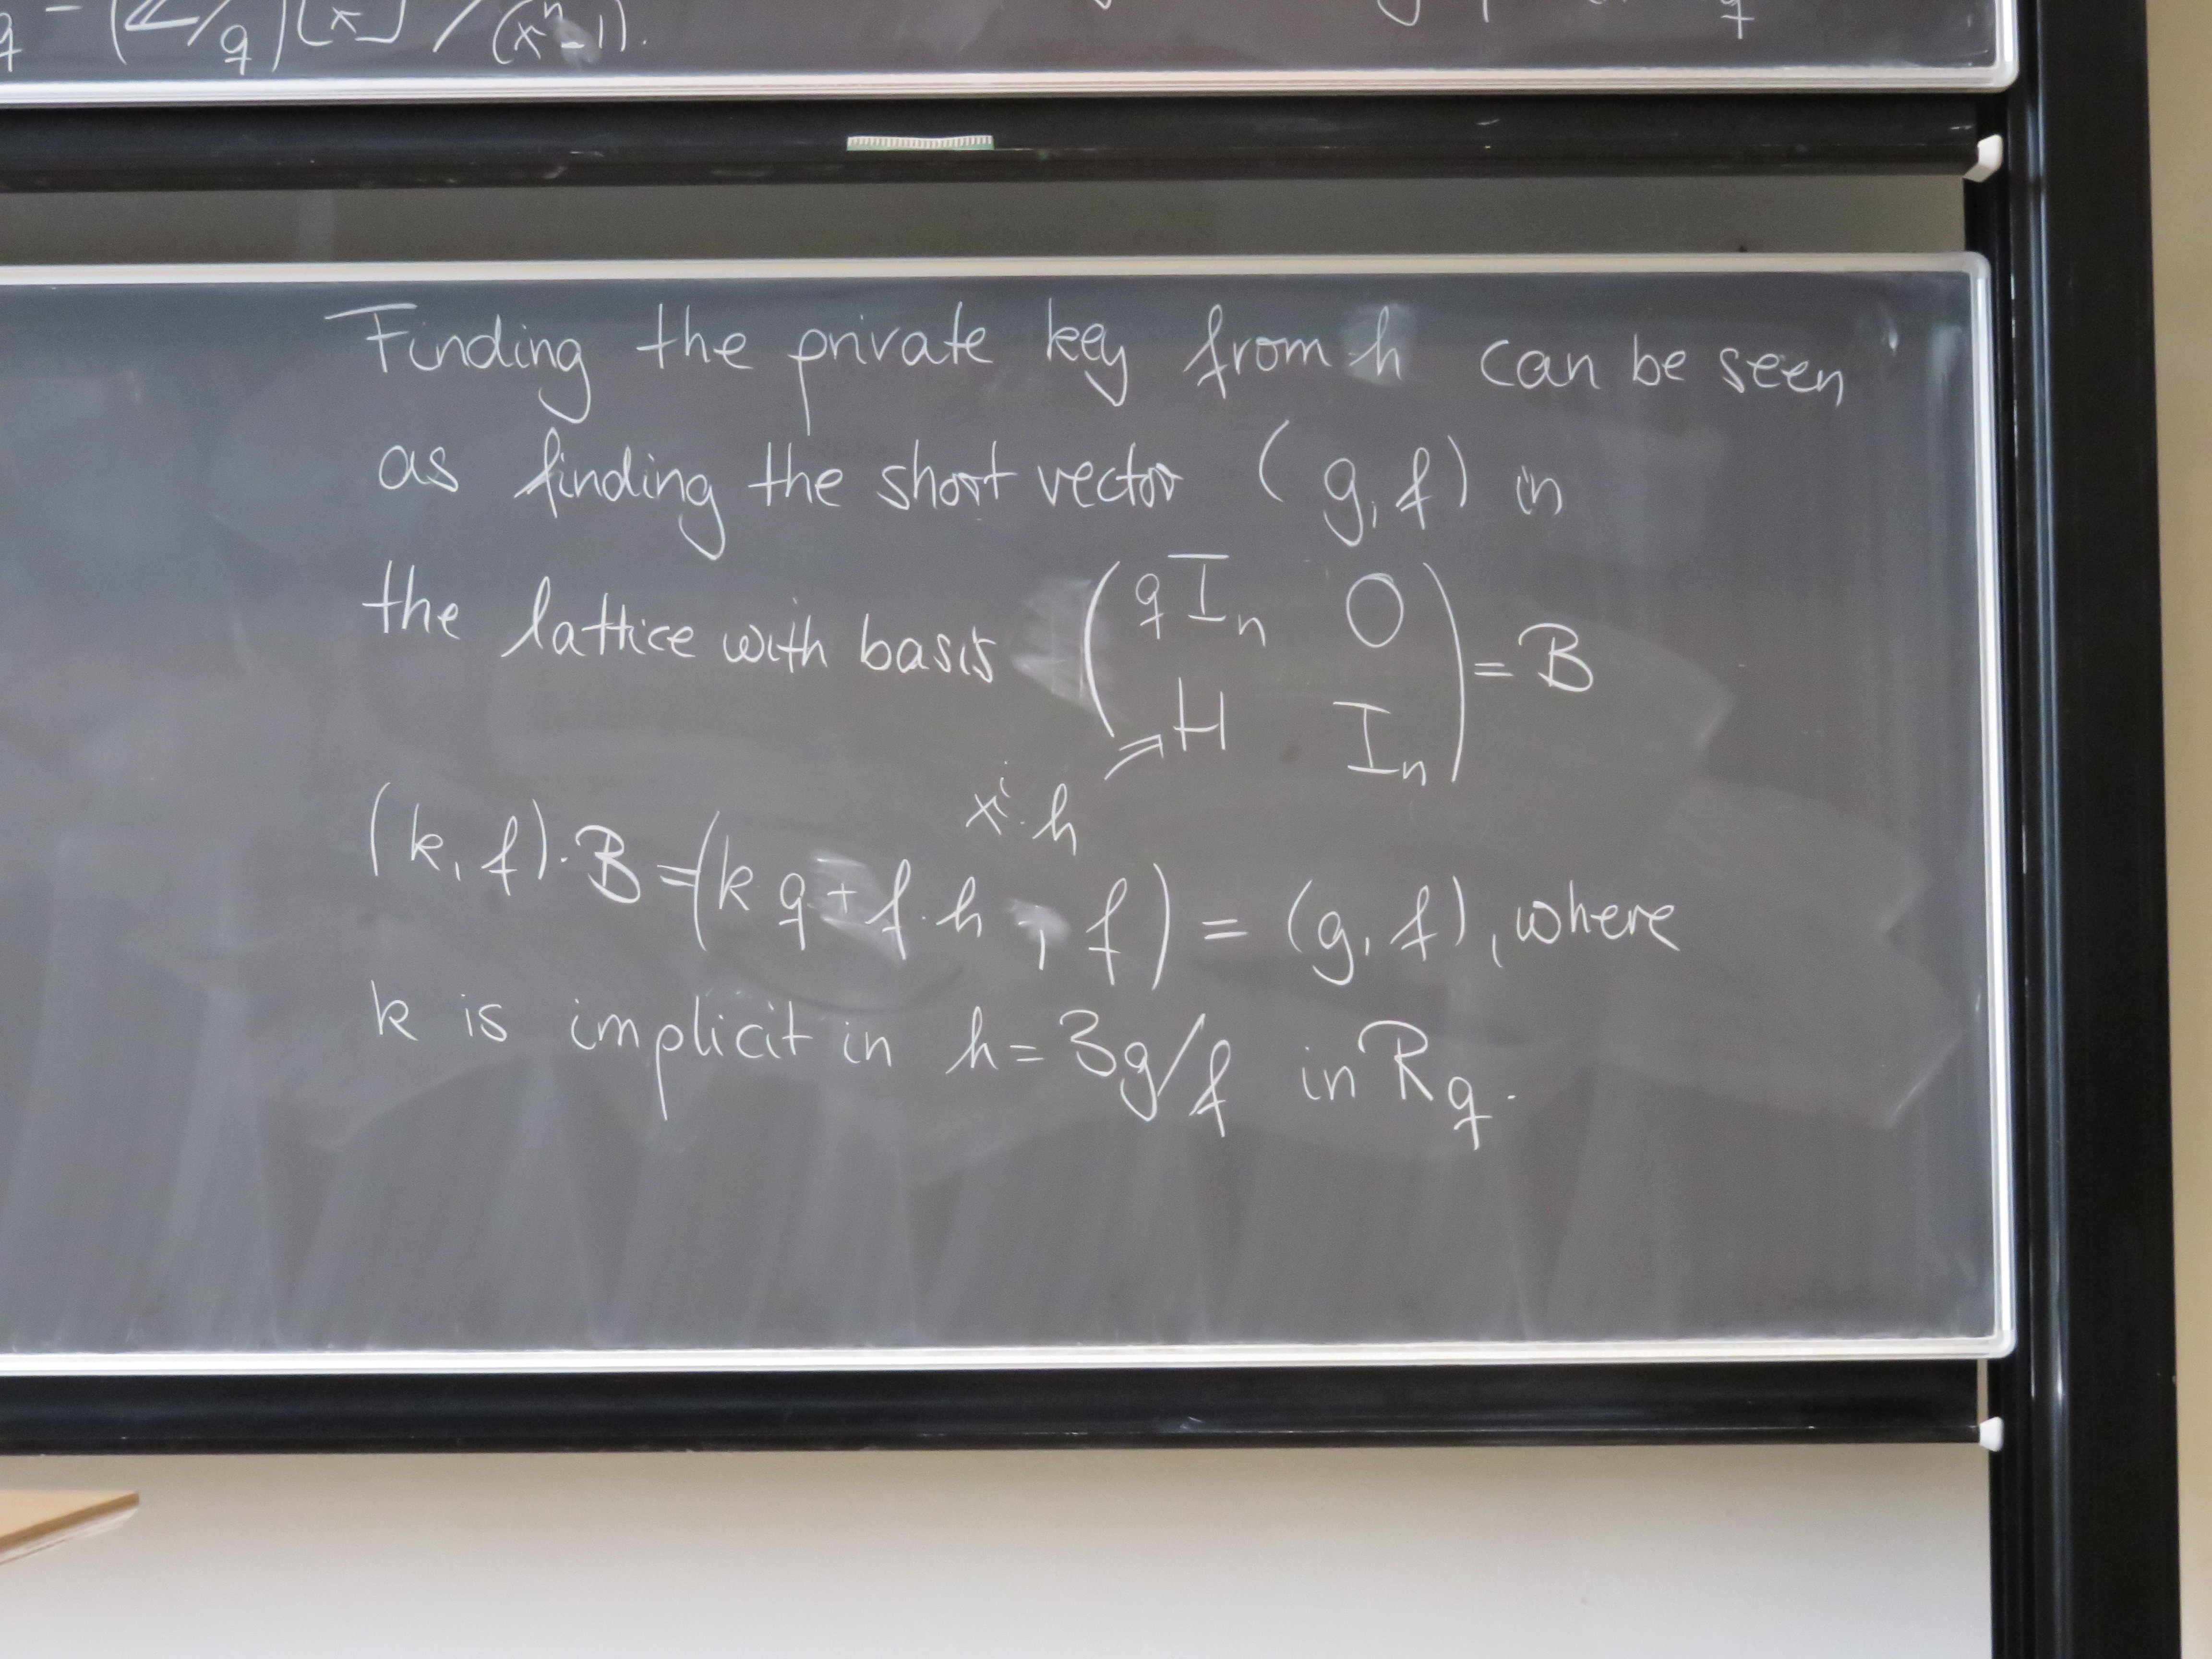 (Z/q)[x]/(xⁿ-1).
Finding the private key from h can be seen
as finding the short vector (g, f) in
the lattice with basis (qIₙ 0
H Iₙ) = B
xⁱ·h
(k, f)·B = (kq + f·h, f) = (g, f), where
k is implicit in h = 3g/f in R_q.